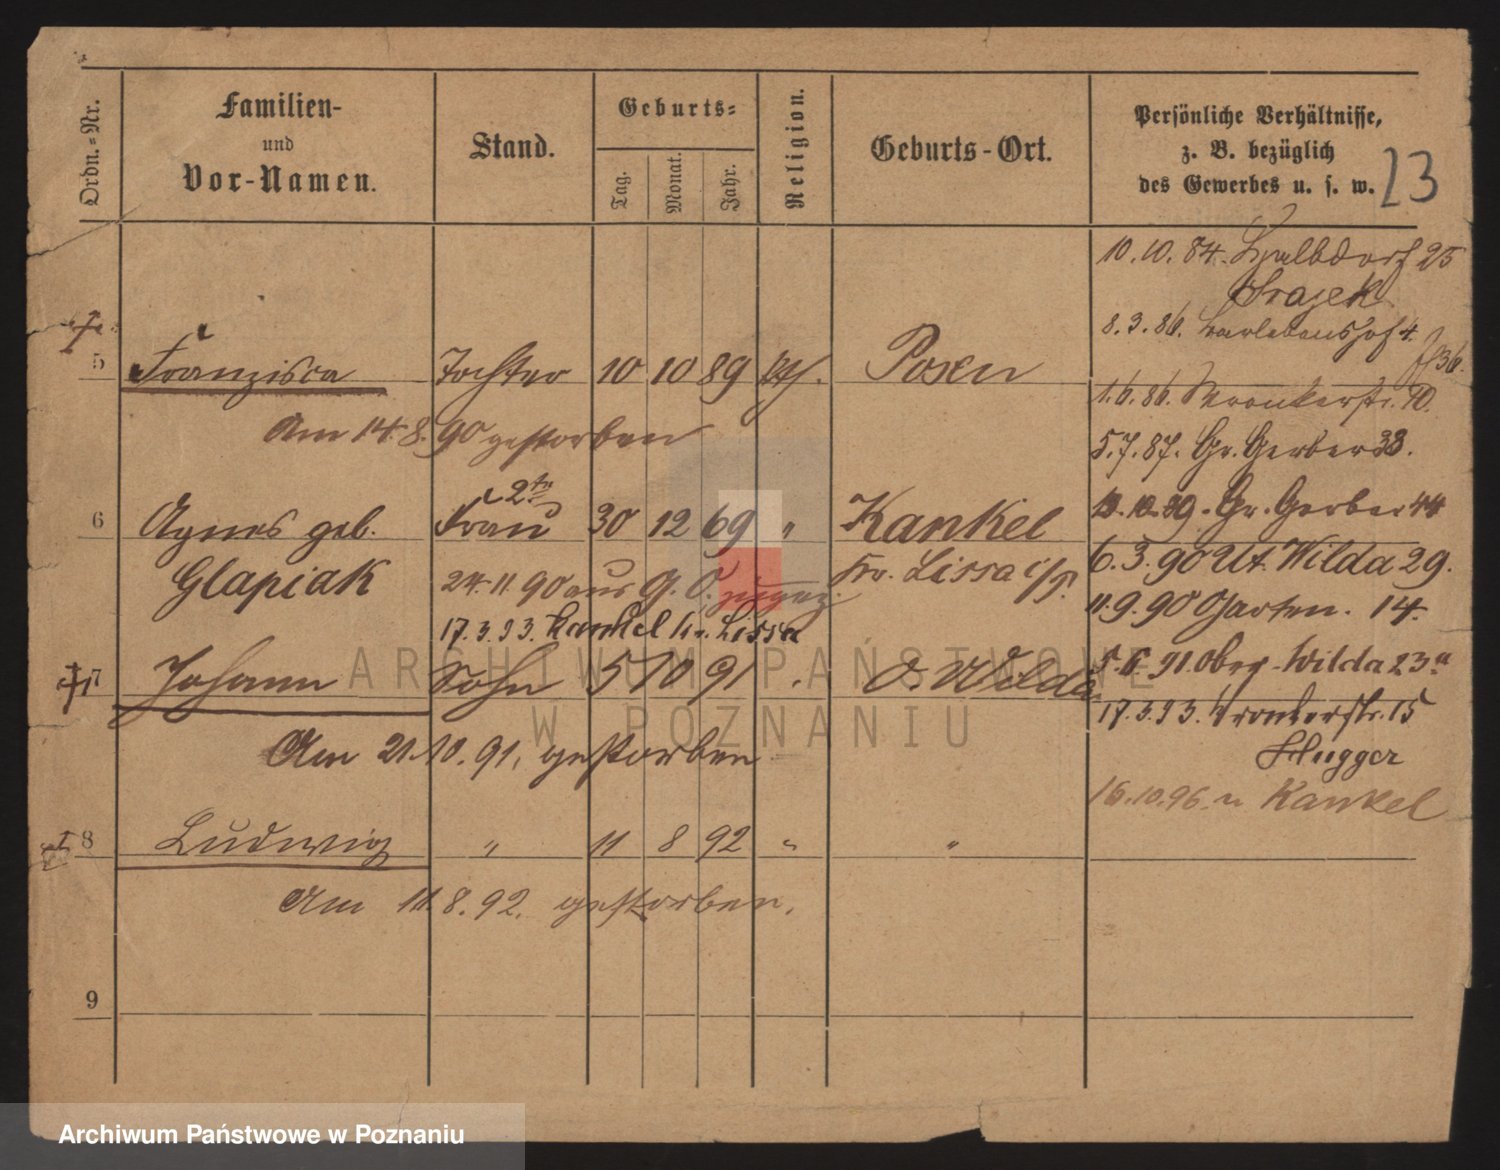 Ordn.=Nr.
Familien-
und
Vor-Namen.
Stand.
Geburts=
Tag.
Monat.
Jahr.
Religion.
Geburts-Ort.
Persönliche Verhältnisse,
z. B. bezüglich
des Gewerbes u. s. w.
23
10. 10. 84. Halbdorf 25
8. 3. 86.
5 Franzisca Tochter 10 10 89 kth. Posen
1. 6. 86. Wronkerstr. 10.
Am 14. 8. 90 gestorben
5. 7. 87. Gr. Gerber 38.
2te
6 Agnes geb. Frau 30 12 69 " Kankel
Gr. Gerber 44
Glapiak
24. 11. 90 aus O. O. zugez.
Kr. Lissa i/P.
6. 3. 90 Ut. Wilda 29.
17. 3. 93. Kankel Kr. Lissa
11. 9. 90 Garten. 14.
7 Johann Sohn 5 10 91 " O. Wilda
5. 6. 91. Oberg-Wilda 23a
17. 3. 93. Wronkerstr. 15
Am 21. 10. 91. gestorben
Hugger
16. 10. 96. n Kankel
8 Ludwig " 11 8 92 " "
Am 11. 8. 92. gestorben.
9
ARCHIWUM PAŃSTWOWE
W POZNANIU
Archiwum Państwowe w Poznaniu